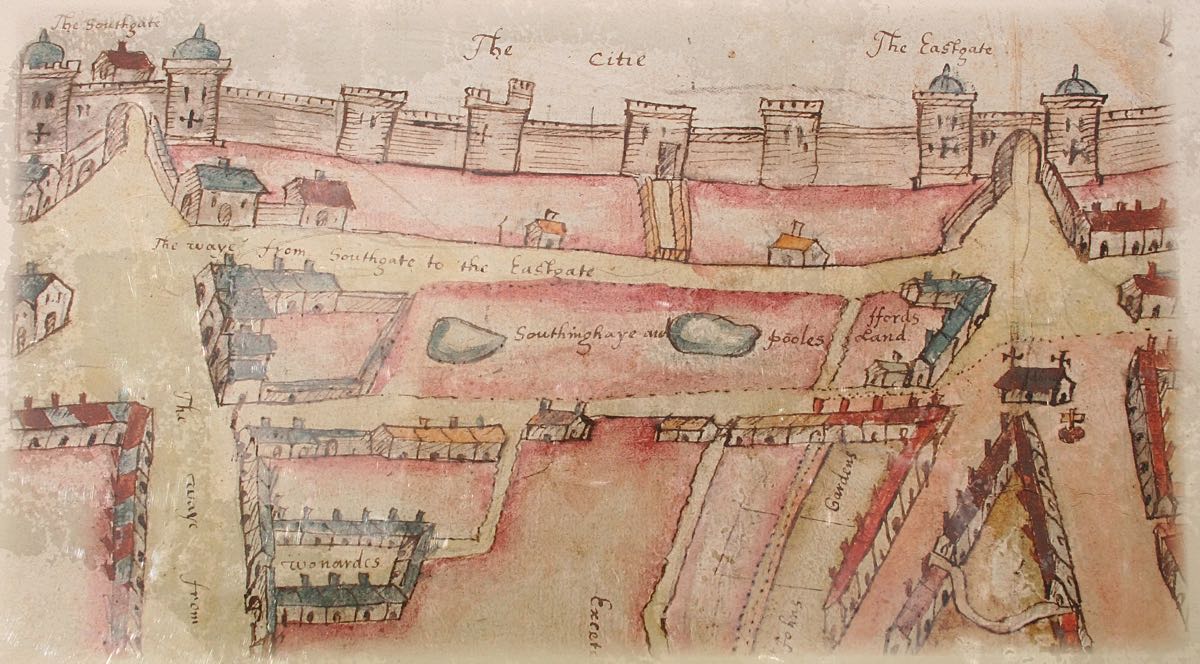 The Southgate
The Citie
The Eastgate
The waye from Southgate to the Eastgate
Southinghaye and pooles
ffords
Land
The waye from
Gardens
wonardes
Johns